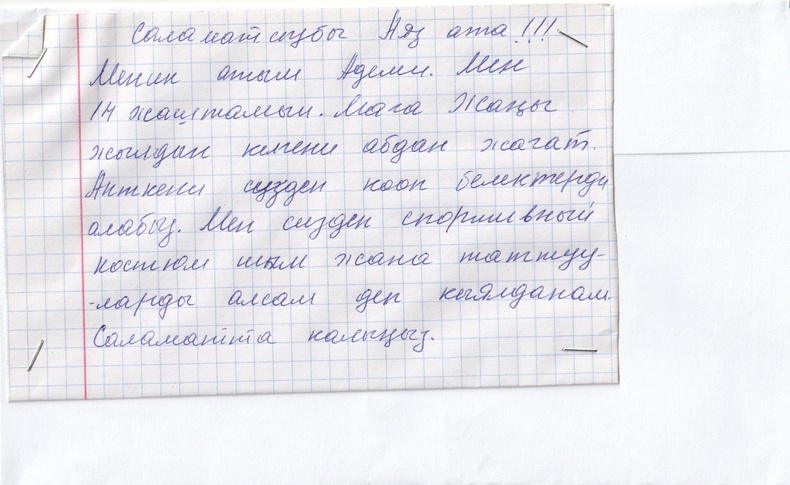 Саламатсызбы Аяз ата!!!
Менин атым Адеми. Мен
14 жаштамын. Мага Жаңы
жылдын келгени абдан жагат.
Анткени сизден көөп белектерди
алабыз. Мен сизден спортивный
костюм шым жана таттуу-
-ларды алсам деп кыялданам.
Саламатта калыңыз.